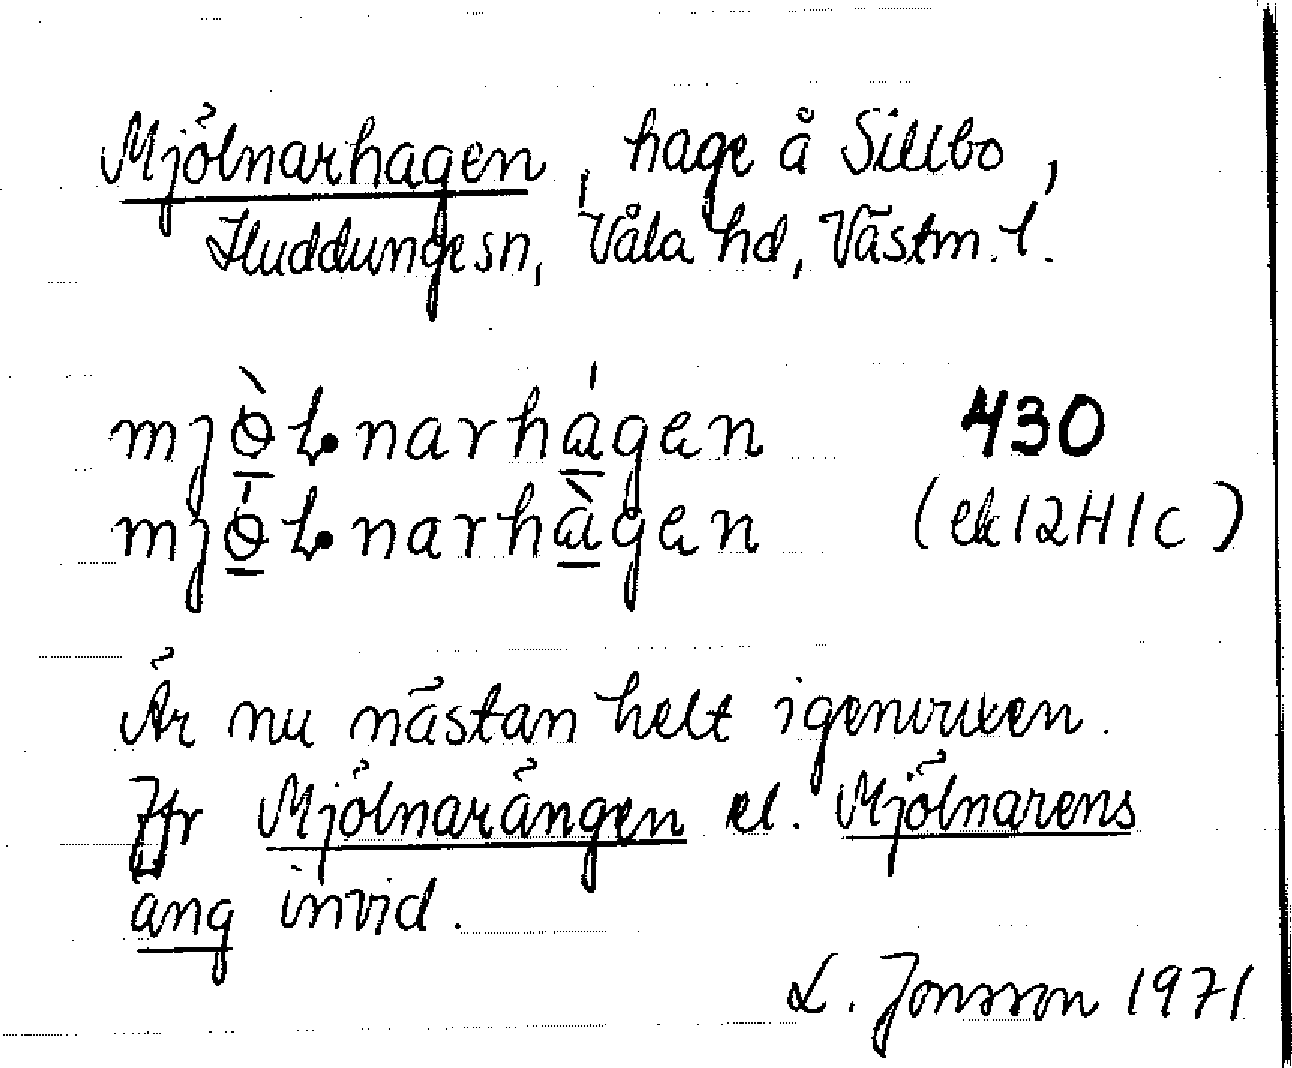 Mjölnarhagen, hage å Sillbo,
Huddunge sn, Våla hd, Västm. l.
mjò̱ⱡ•narhá̱gen 430
mjó̱ⱡ•narhà̱gen (ek 12H1c)
Är nu nästan helt igenvuxen.
Jfr Mjölnarängen el. Mjölnarens
äng invid.
L. Jonsson 1971